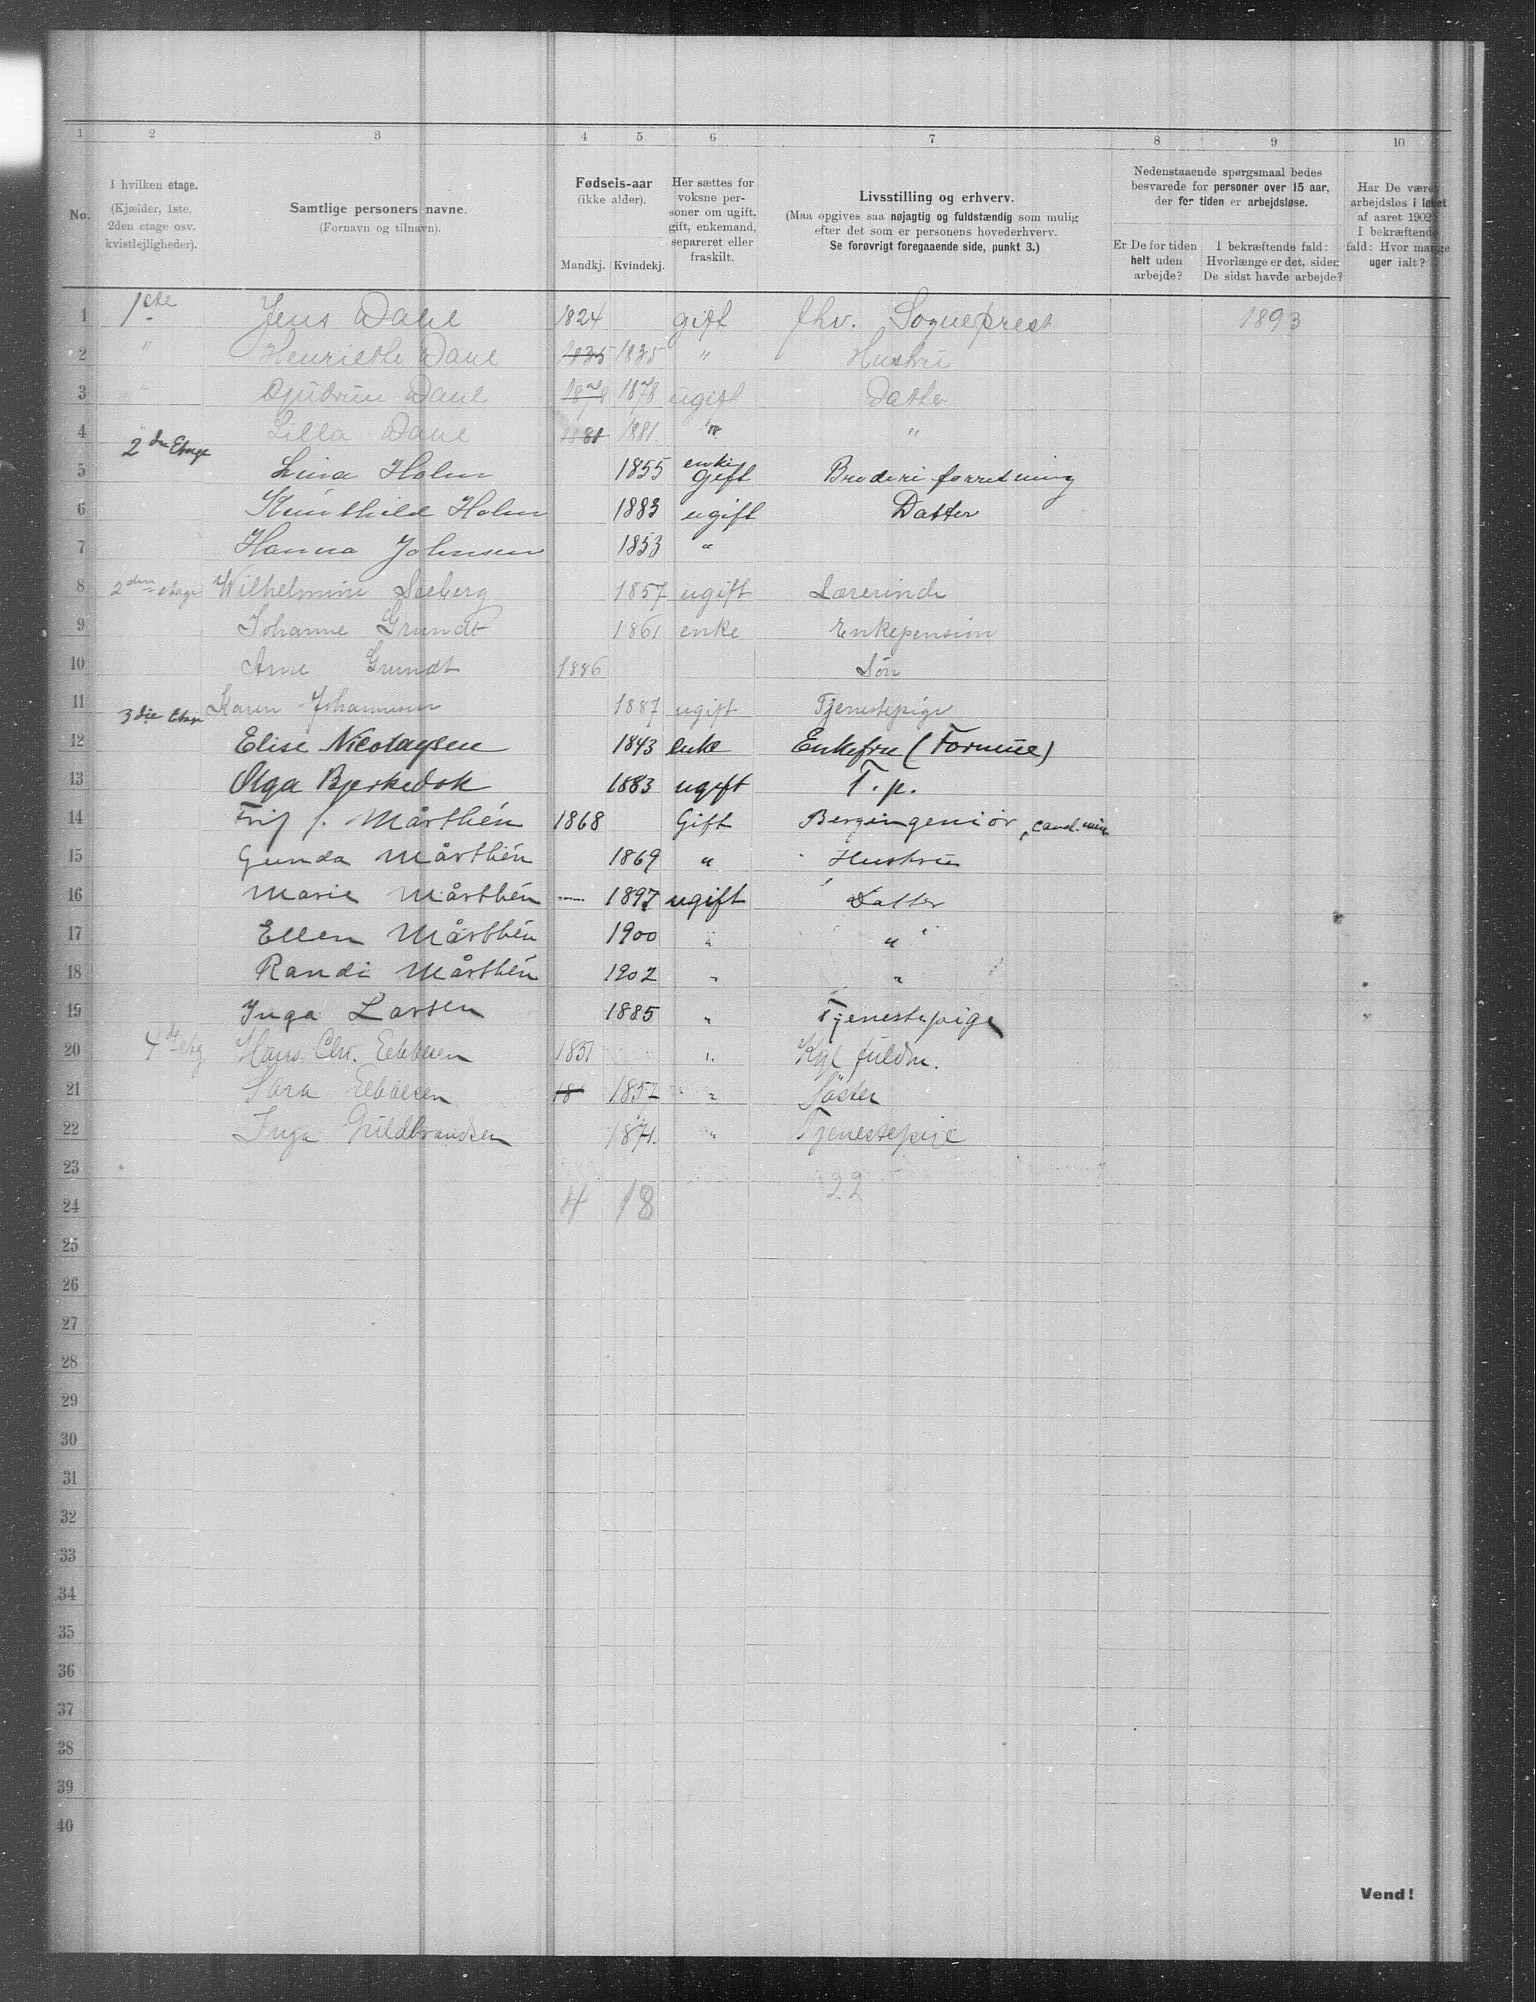 1 2 3 4 5 6 7 8 9 10
No.
I hvilken etage. (Kjælder, 1ste, 2den etage osv. kvistlejligheder).
Samtlige personers navne. (Fornavn og tilnavn).
Fødsels-aar (ikke alder). Mandkj. Kvindekj.
Her sættes for voksne personer om ugift, gift, enkemand, separeret eller fraskilt.
Livsstilling og erhverv. (Maa opgives saa nøjagtig og fuldstændig som mulig efter det som er personens hovederhverv. Se forøvrigt foregaaende side, punkt 3.)
Nedenstaaende spørgsmaal bedes besvarede for personer over 15 aar, der for tiden er arbejdsløse.
Er De for tiden helt uden arbejde?
I bekræftende fald: Hvorlænge er det, siden De sidst havde arbejde?
Har De været arbejdsløs i løbet af aaret 1902? I bekræftende fald: Hvor mange uger ialt?
1 1ste Jens Dahl 1824 gift fhv. Sogneprest 1893
2 " Henriette Dahl 1835 1835 " Hustru
3 " Gudrun Dahl 1878 1878 ugift Datter
4 " Lilla Dahl 1881 1881. " "
5 2den Etage Lina Holm 1855 enke Gift Broderiforretning
6 Kunthild Holm 1883 ugift Datter
7 Hanna Johnsen 1853 "
8 2den etage Wilhelmine Seeberg 1857 ugift Lærerinde
9 Johanne Grundt 1861 enke Enkepension
10 Arne Grundt 1886 Søn
11 Karen Johannesen 1887 ugift Tjenestepige
12 3die Etage Elise Nicolaysen 1843 enke Enkefru (Formue)
13 Olga Bjerkedok 1883 ugift T. p.
14 J. Mårthén 1868 Gift Bergingeniør, cand. min
15 Gunda Mårthén 1869 " Hustru
16 Marie Mårthén — 1897 ugift Datter
17 Ellen Mårthén 1900 " "
18 Randi Mårthén 1902 " "
19 Inga Larsen 1885 " Tjenestepige
20 4de etg Hans Chr. Ebbesen 1851 " Kgl fuldm.
21 Sara Ebbesen 18 1857 " Søster
22 Inga Guldbrandsen 1871. " Tjenestepige
23
24 4 18 22
25
26
27
28
29
30
31
32
33
34
35
36
37
38
39
40
Vend!